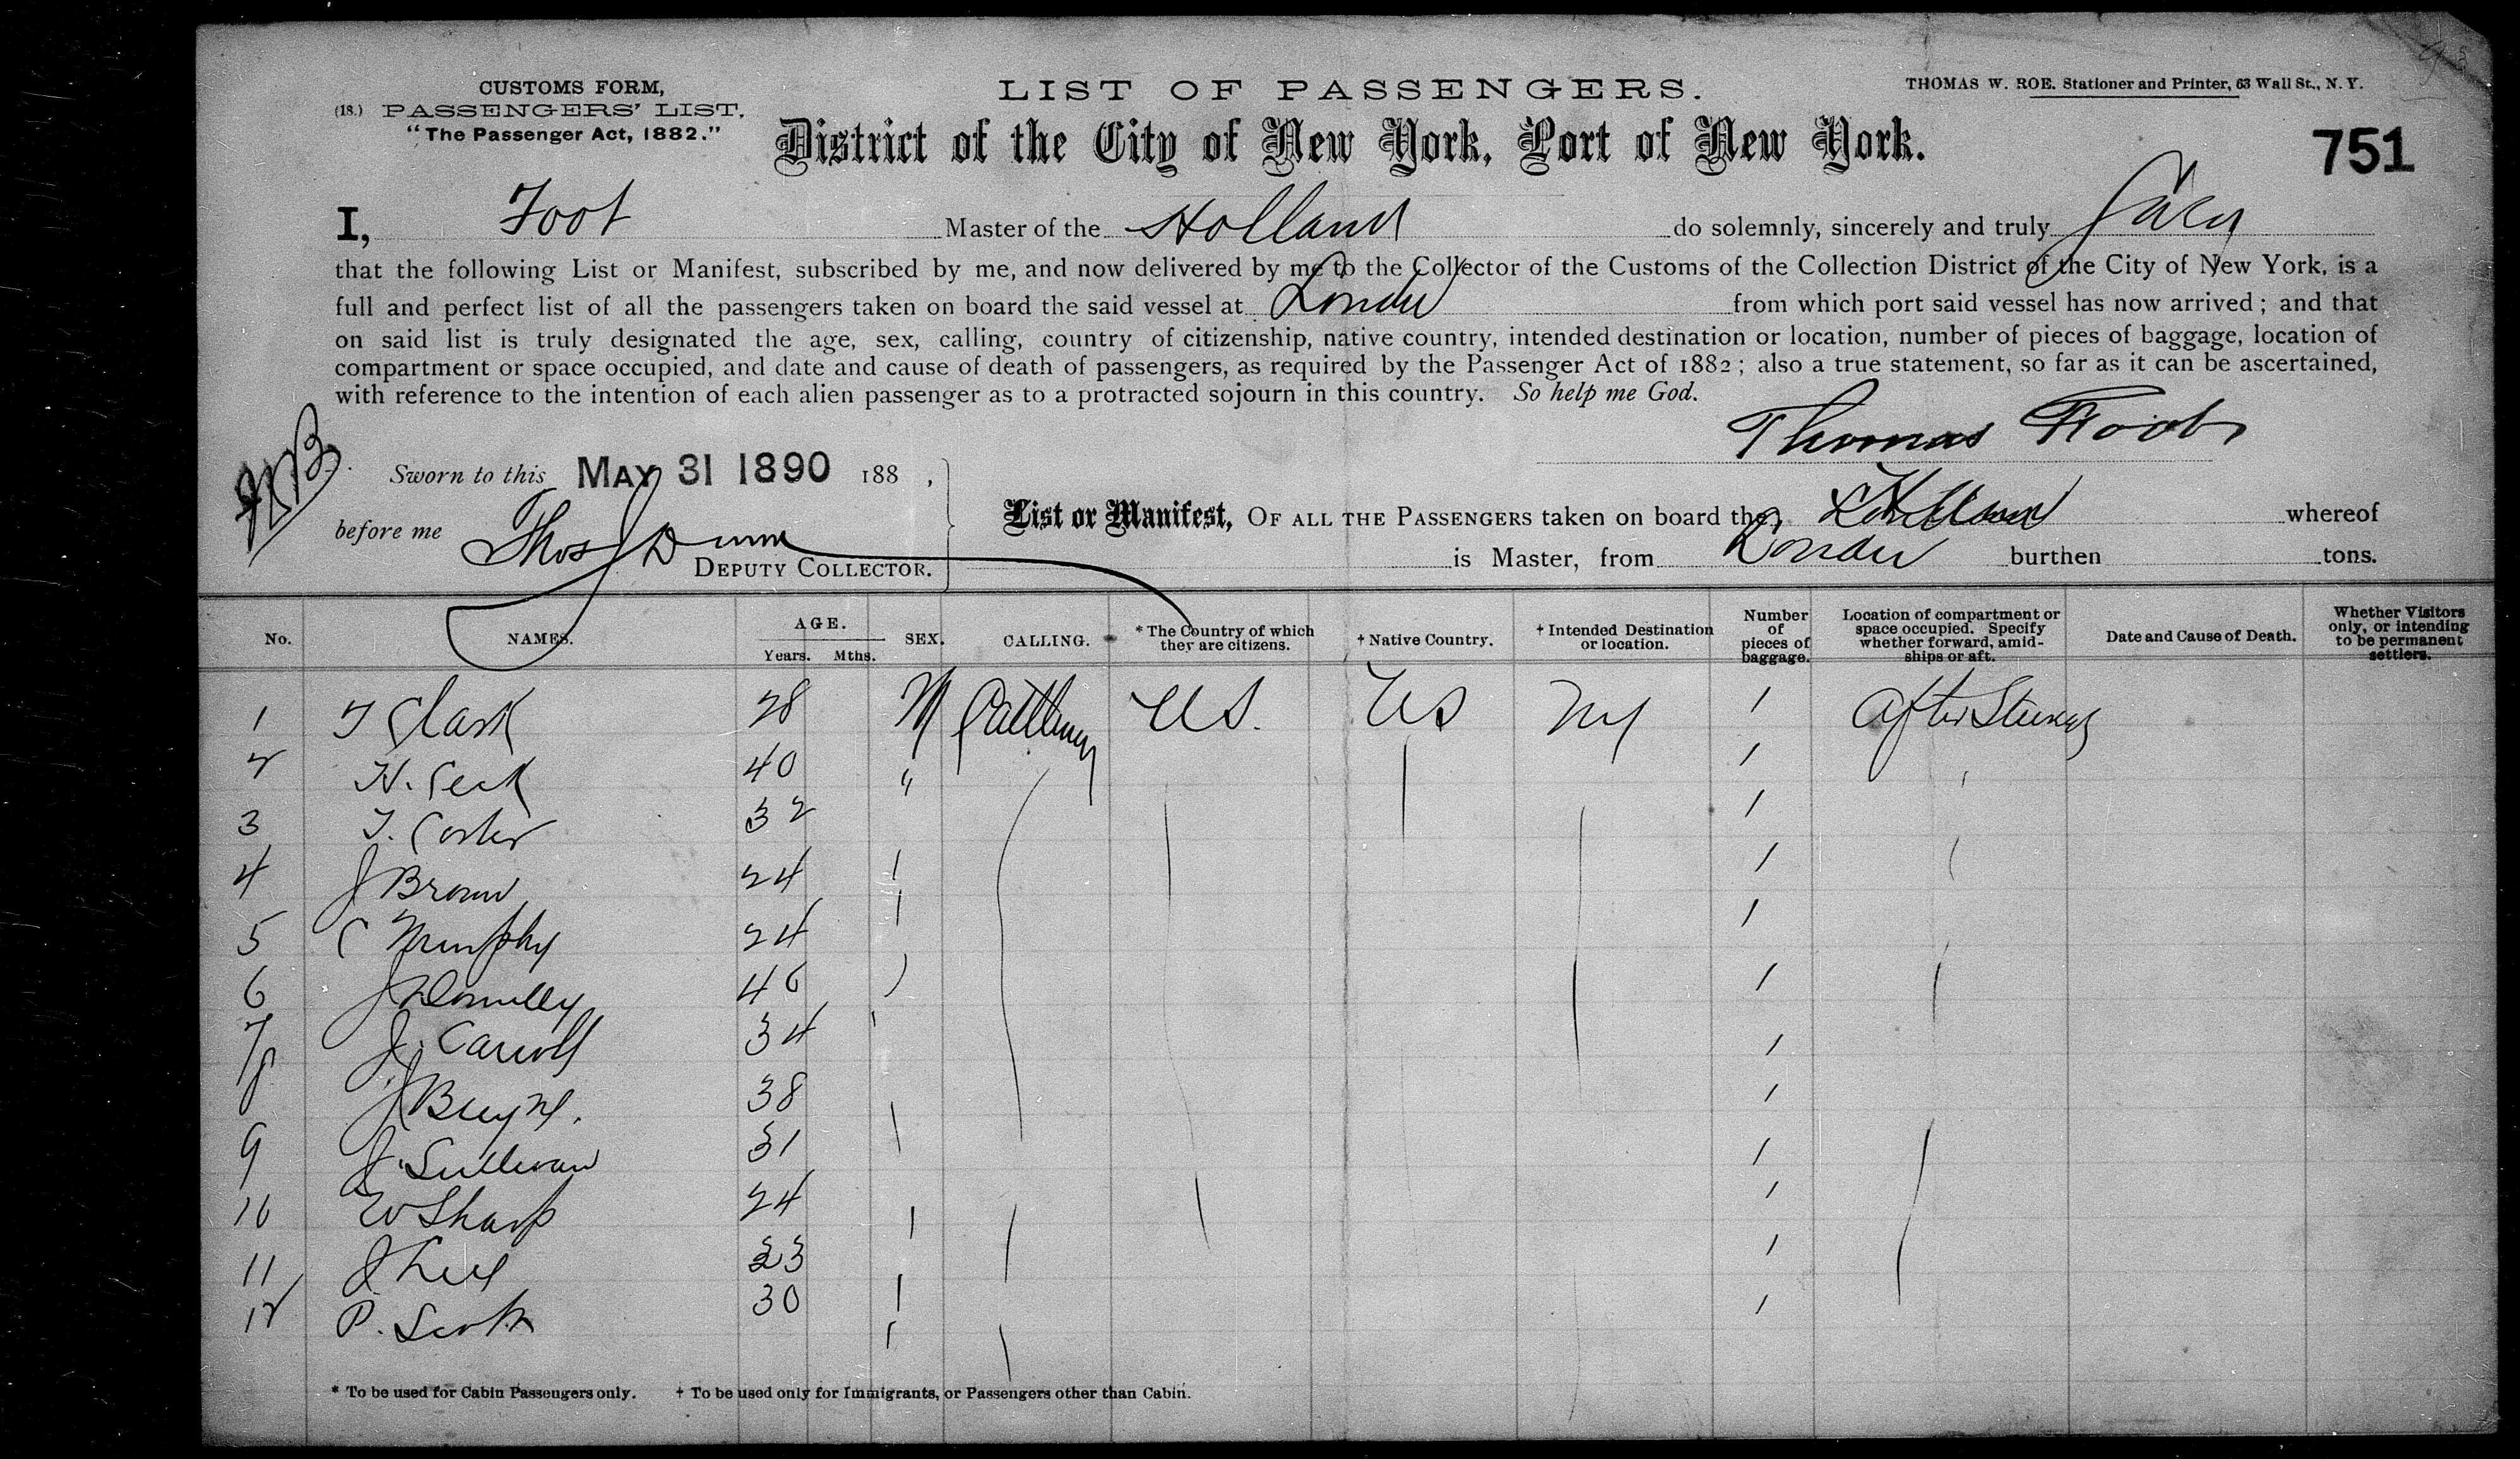 CUSTOMS FORM,
(18.) PASSENGERS' LIST,
"The Passenger Act, 1882."
LIST OF PASSENGERS.
THOMAS W. ROE. Stationer and Printer, 63 Wall St., N. Y.
District of the City of New York, Port of New York.
751
I, Foot Master of the Holland do solemnly, sincerely and truly
that the following List or Manifest, subscribed by me, and now delivered by me to the Collector of the Customs of the Collection District of the City of New York, is a
full and perfect list of all the passengers taken on board the said vessel at London from which port said vessel has now arrived; and that
on said list is truly designated the age, sex, calling, country of citizenship, native country, intended destination or location, number of pieces of baggage, location of
compartment or space occupied, and date and cause of death of passengers, as required by the Passenger Act of 1882; also a true statement, so far as it can be ascertained,
with reference to the intention of each alien passenger as to a protracted sojourn in this country. So help me God.
Thomas Foot
Sworn to this MAY 31 1890 188 ,
before me Thos J Dunn
DEPUTY COLLECTOR.
List or Manifest, OF ALL THE PASSENGERS taken on board the Holland whereof
is Master, from London burthen tons.
No. NAMES. AGE. Years. Mths. SEX. CALLING. * The Country of which they are citizens. † Native Country. † Intended Destination or location. Number of pieces of baggage. Location of compartment or space occupied. Specify whether forward, amidships or aft. Date and Cause of Death. Whether Visitors only, or intending to be permanent settlers.
1 T Clark 28 M Cattleman US. US NY 1 After Steerage
2 H. Peck 40 " 1
3 T. Coster 32 1
4 J Brown 24 1
5 C Murphy 24 1
6 J Donnelly 46 1
7 J. Carroll 34 1
8 J 38 1
9 J. Sullivan 31 1
10 W Sharp 24 1
11 J 23 1
12 P. Scott 30 1
* To be used for Cabin Passengers only. † To be used only for Immigrants, or Passengers other than Cabin.